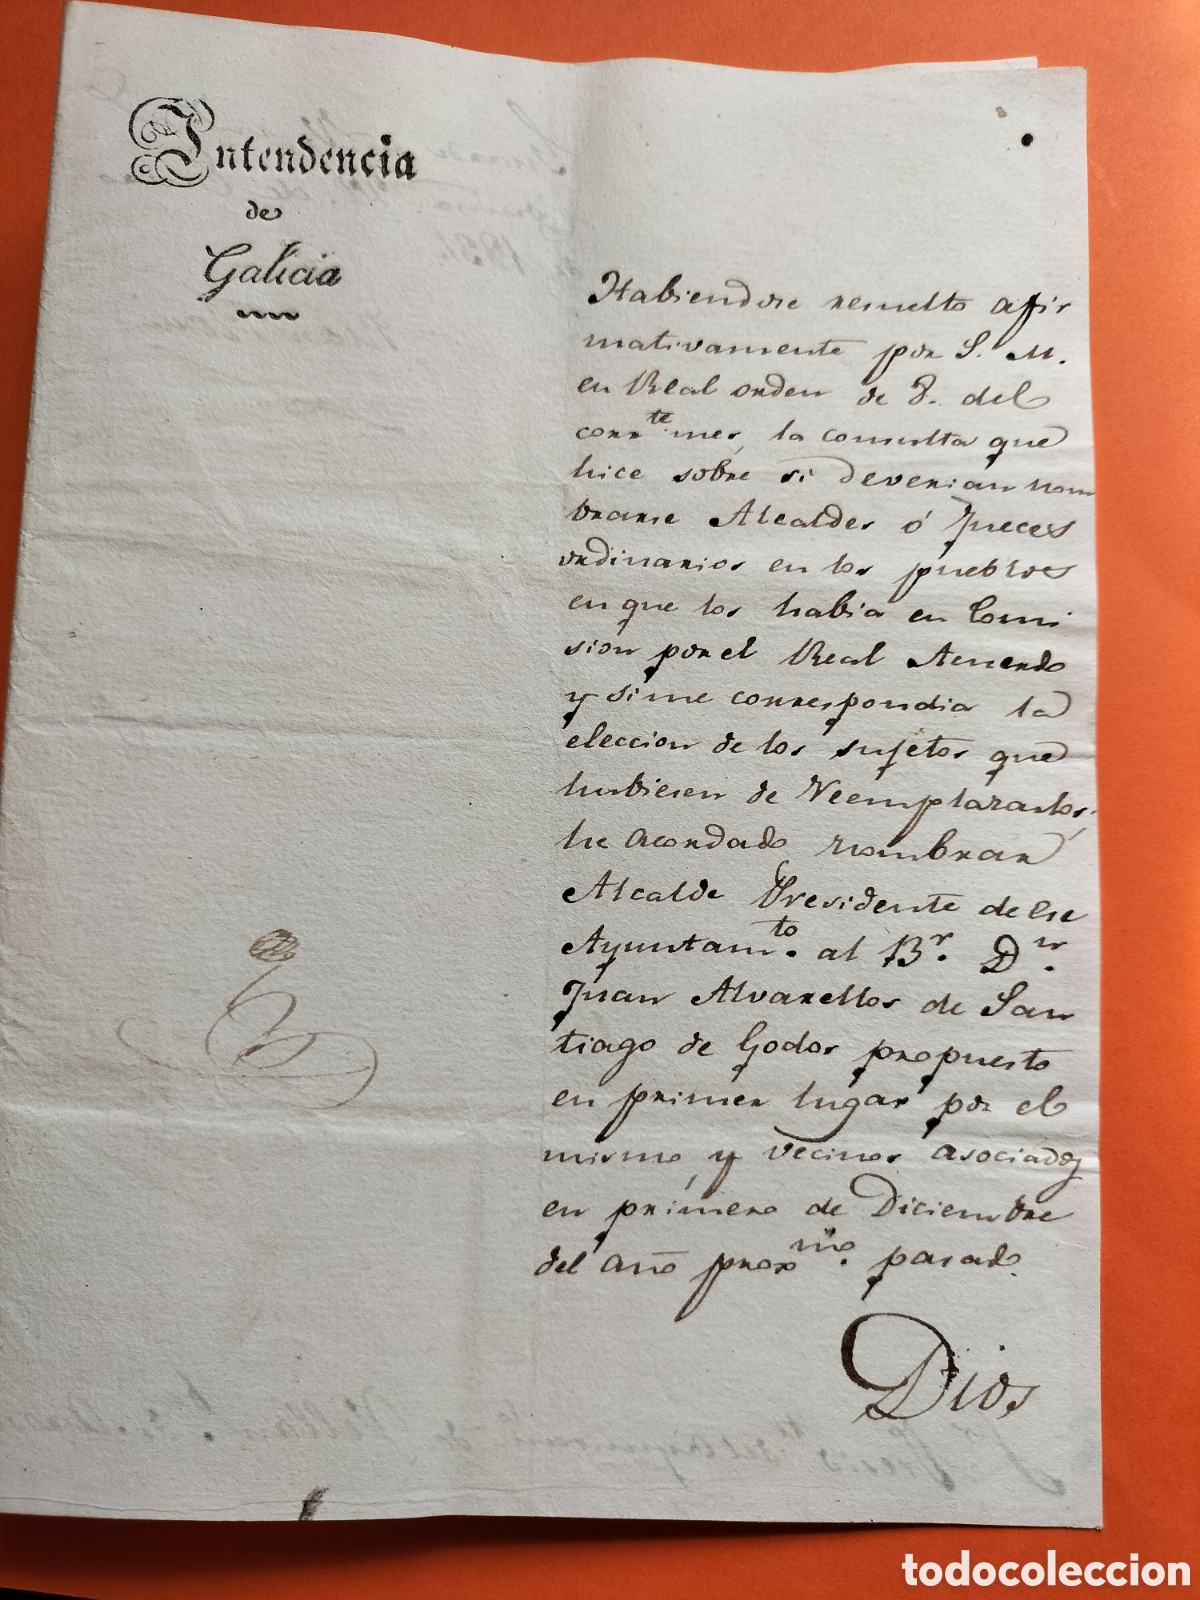 Intendencia
de
Galicia
Habiendose resuelto afir
mativamente por S. M.
en Real orden de 8. del
corrte. mes, la consulta que
hice sobre si deverian nom
brarse Alcaldes ó Jueces
ordinarios en los pueblos
en que los habia en Comi
sion por el Real Acuerdo
y si me correspondia la
eleccion de los sujetos que
hubiesen de Reemplazarlos,
he acordado nombrar
Alcalde Presidente de ese
Ayuntamto. al Br. Dn.
Juan Alvarellos de San
tiago de Godos propuesto
en primer lugar por el
mismo y vecinos asociados
en primero de Diciembre
del año proxmo. pasado.
Dios
todocoleccion